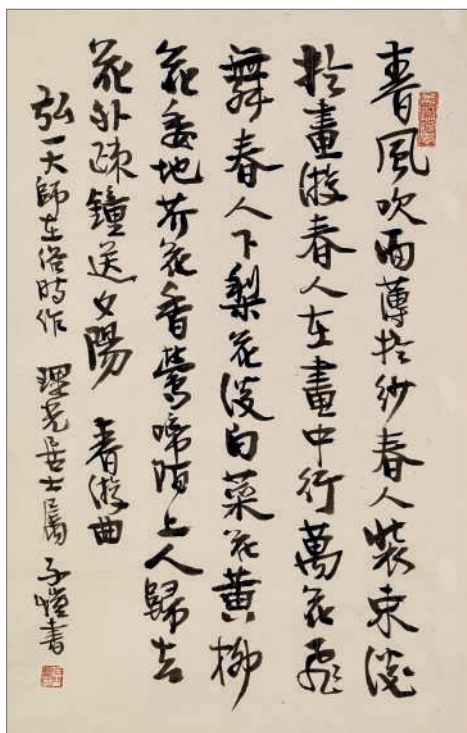 春風吹面薄於紗春人裝束淡
於畫游春人在畫中行萬花飛
舞春人下梨花淡白菜花黃柳
花委地芥花香鶯啼陌上人歸去
花外疎鐘送夕陽 春游曲
弘一大師在俗時作 居士属 子愷書